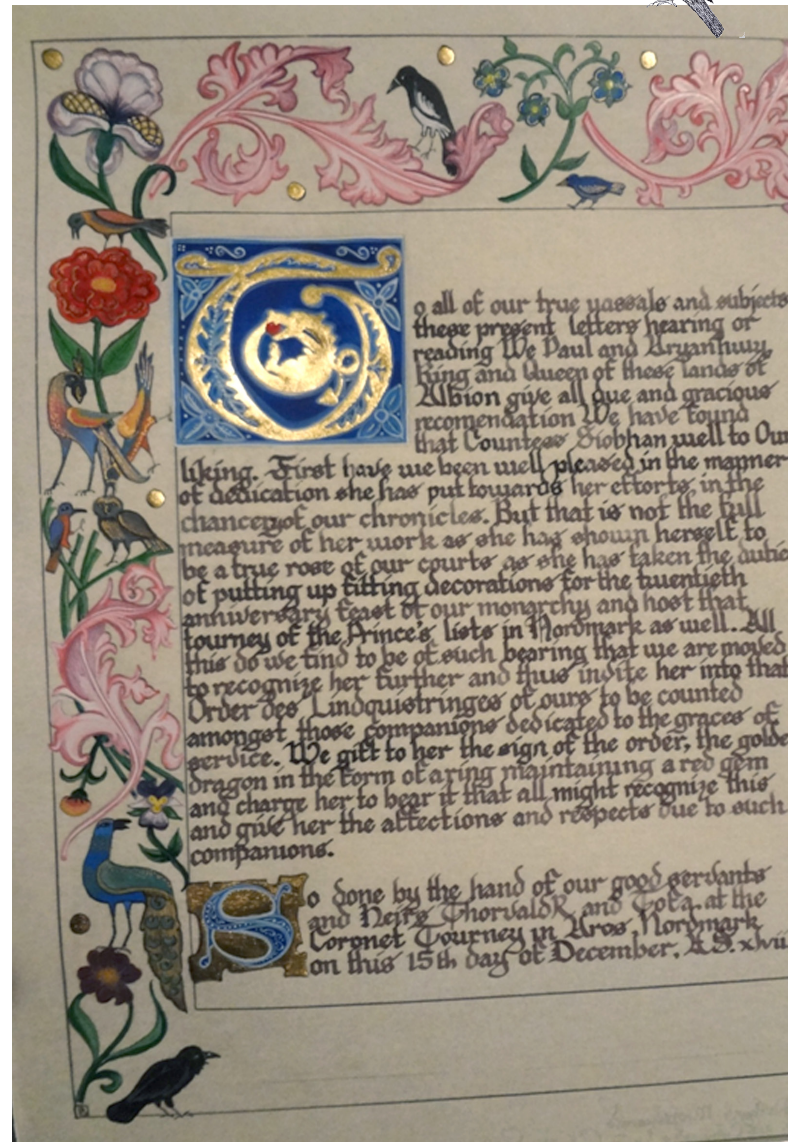 To all of our true vassals and subjects
these present letters hearing or
reading We Paul and Aryanhwy,
King and Queen of these lands of
Albion give all due and gracious
recomendation We have found
that Countess Siobhan well to Our
liking. First have we been well pleased in the manner
of dedication she has put towards her efforts in the
chancery of our chronicles. But that is not the full
measure of her work as she has shown herself to
be a true rose of our courts as she has taken the dutie
of putting up fitting decorations for the twentieth
anniversary feast of our monarchy and host that
tourney of the Prince's lists in Nordmark as well. All
this do we find to be of such bearing that we are moved
to recognize her further and thus indite her into that
Order des Lindquistringes of ours to be counted
amongst those companions dedicated to the graces of
service. We gift to her the sign of the order, the golde
dragon in the form of a ring maintaining a red gem
and charge her to bear it that all might recognize this
and give her the affections and respects due to such
companions.
So done by the hand of our good servants
and Heirs Thorvaldr and Tofa at the
Coronet Tourney in Aros, Nordmark
on this 15th day of December, A.S. xlvii